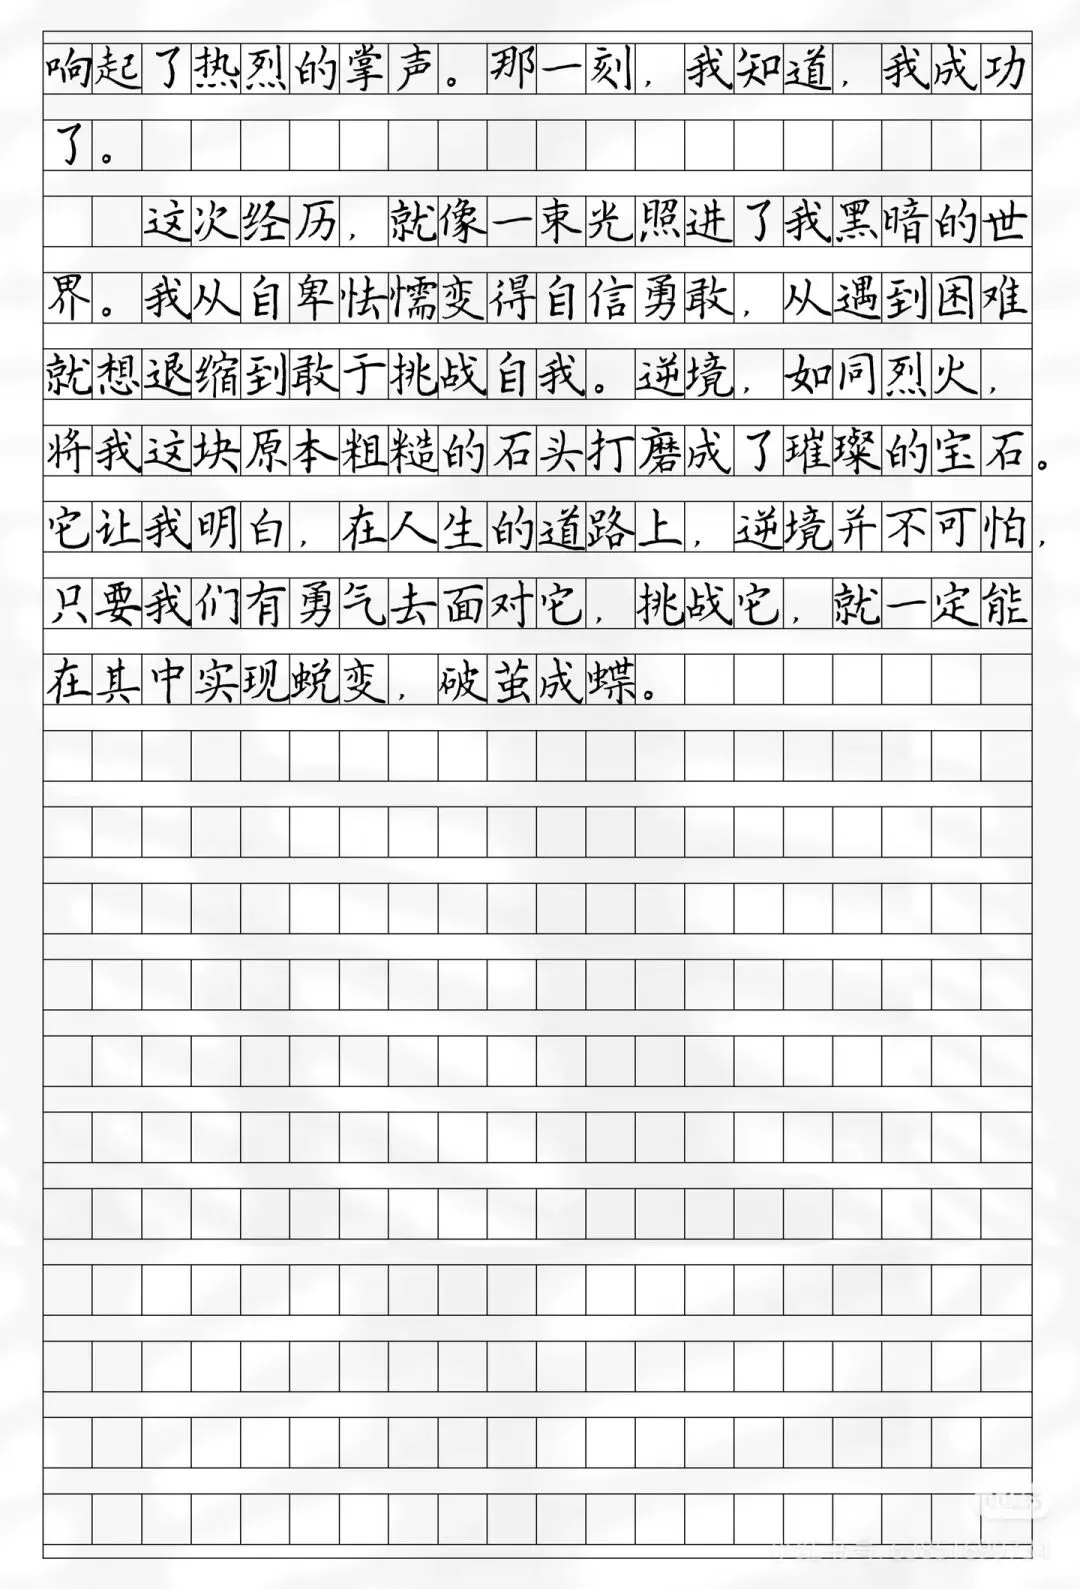 响起了热烈的掌声。那一刻，我知道，我成功
了。
这次经历，就像一束光照进了我黑暗的世
界。我从自卑怯懦变得自信勇敢，从遇到困难
就想退缩到敢于挑战自我。逆境，如同烈火，
将我这块原本粗糙的石头打磨成了璀璨的宝石。
它让我明白，在人生的道路上，逆境并不可怕，
只要我们有勇气去面对它，挑战它，就一定能
在其中实现蜕变，破茧成蝶。